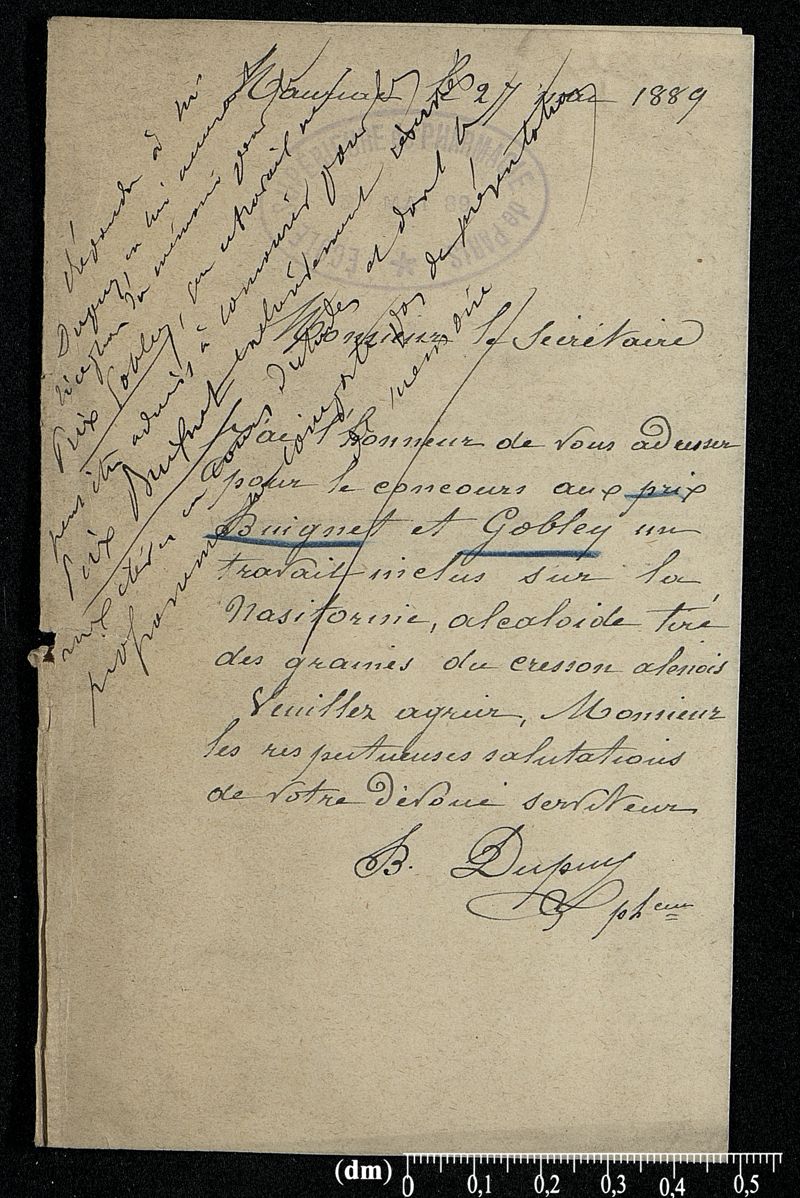 le 27 mai 1889
ÉCOLE SUPÉRIEURE DE PHARMACIE de PARIS
Monsieur le Secrétaire
J'ai l'honneur de vous adresser
pour le concours aux prix
Buignet et Gobley un
travail inclus sur la
Nasitornie, alcaloide tiré
des graines du cresson alenois
Veuillez agréer, Monsieur
les respectueuses salutations
de votre dévoué serviteur
B. Dupuy
phcien
Répondre à Mr
Dupuy, en lui accusant
réception du mémoire pour
Prix Gobley, que ce travail ne
peut être admis à concourir pour
Prix Buignet exclusivement réservé
aux élèves en cours d'études et dont le
programme ne comporte pas de présentation
de mémoire
(dm) 0 0,1 0,2 0,3 0,4 0,5